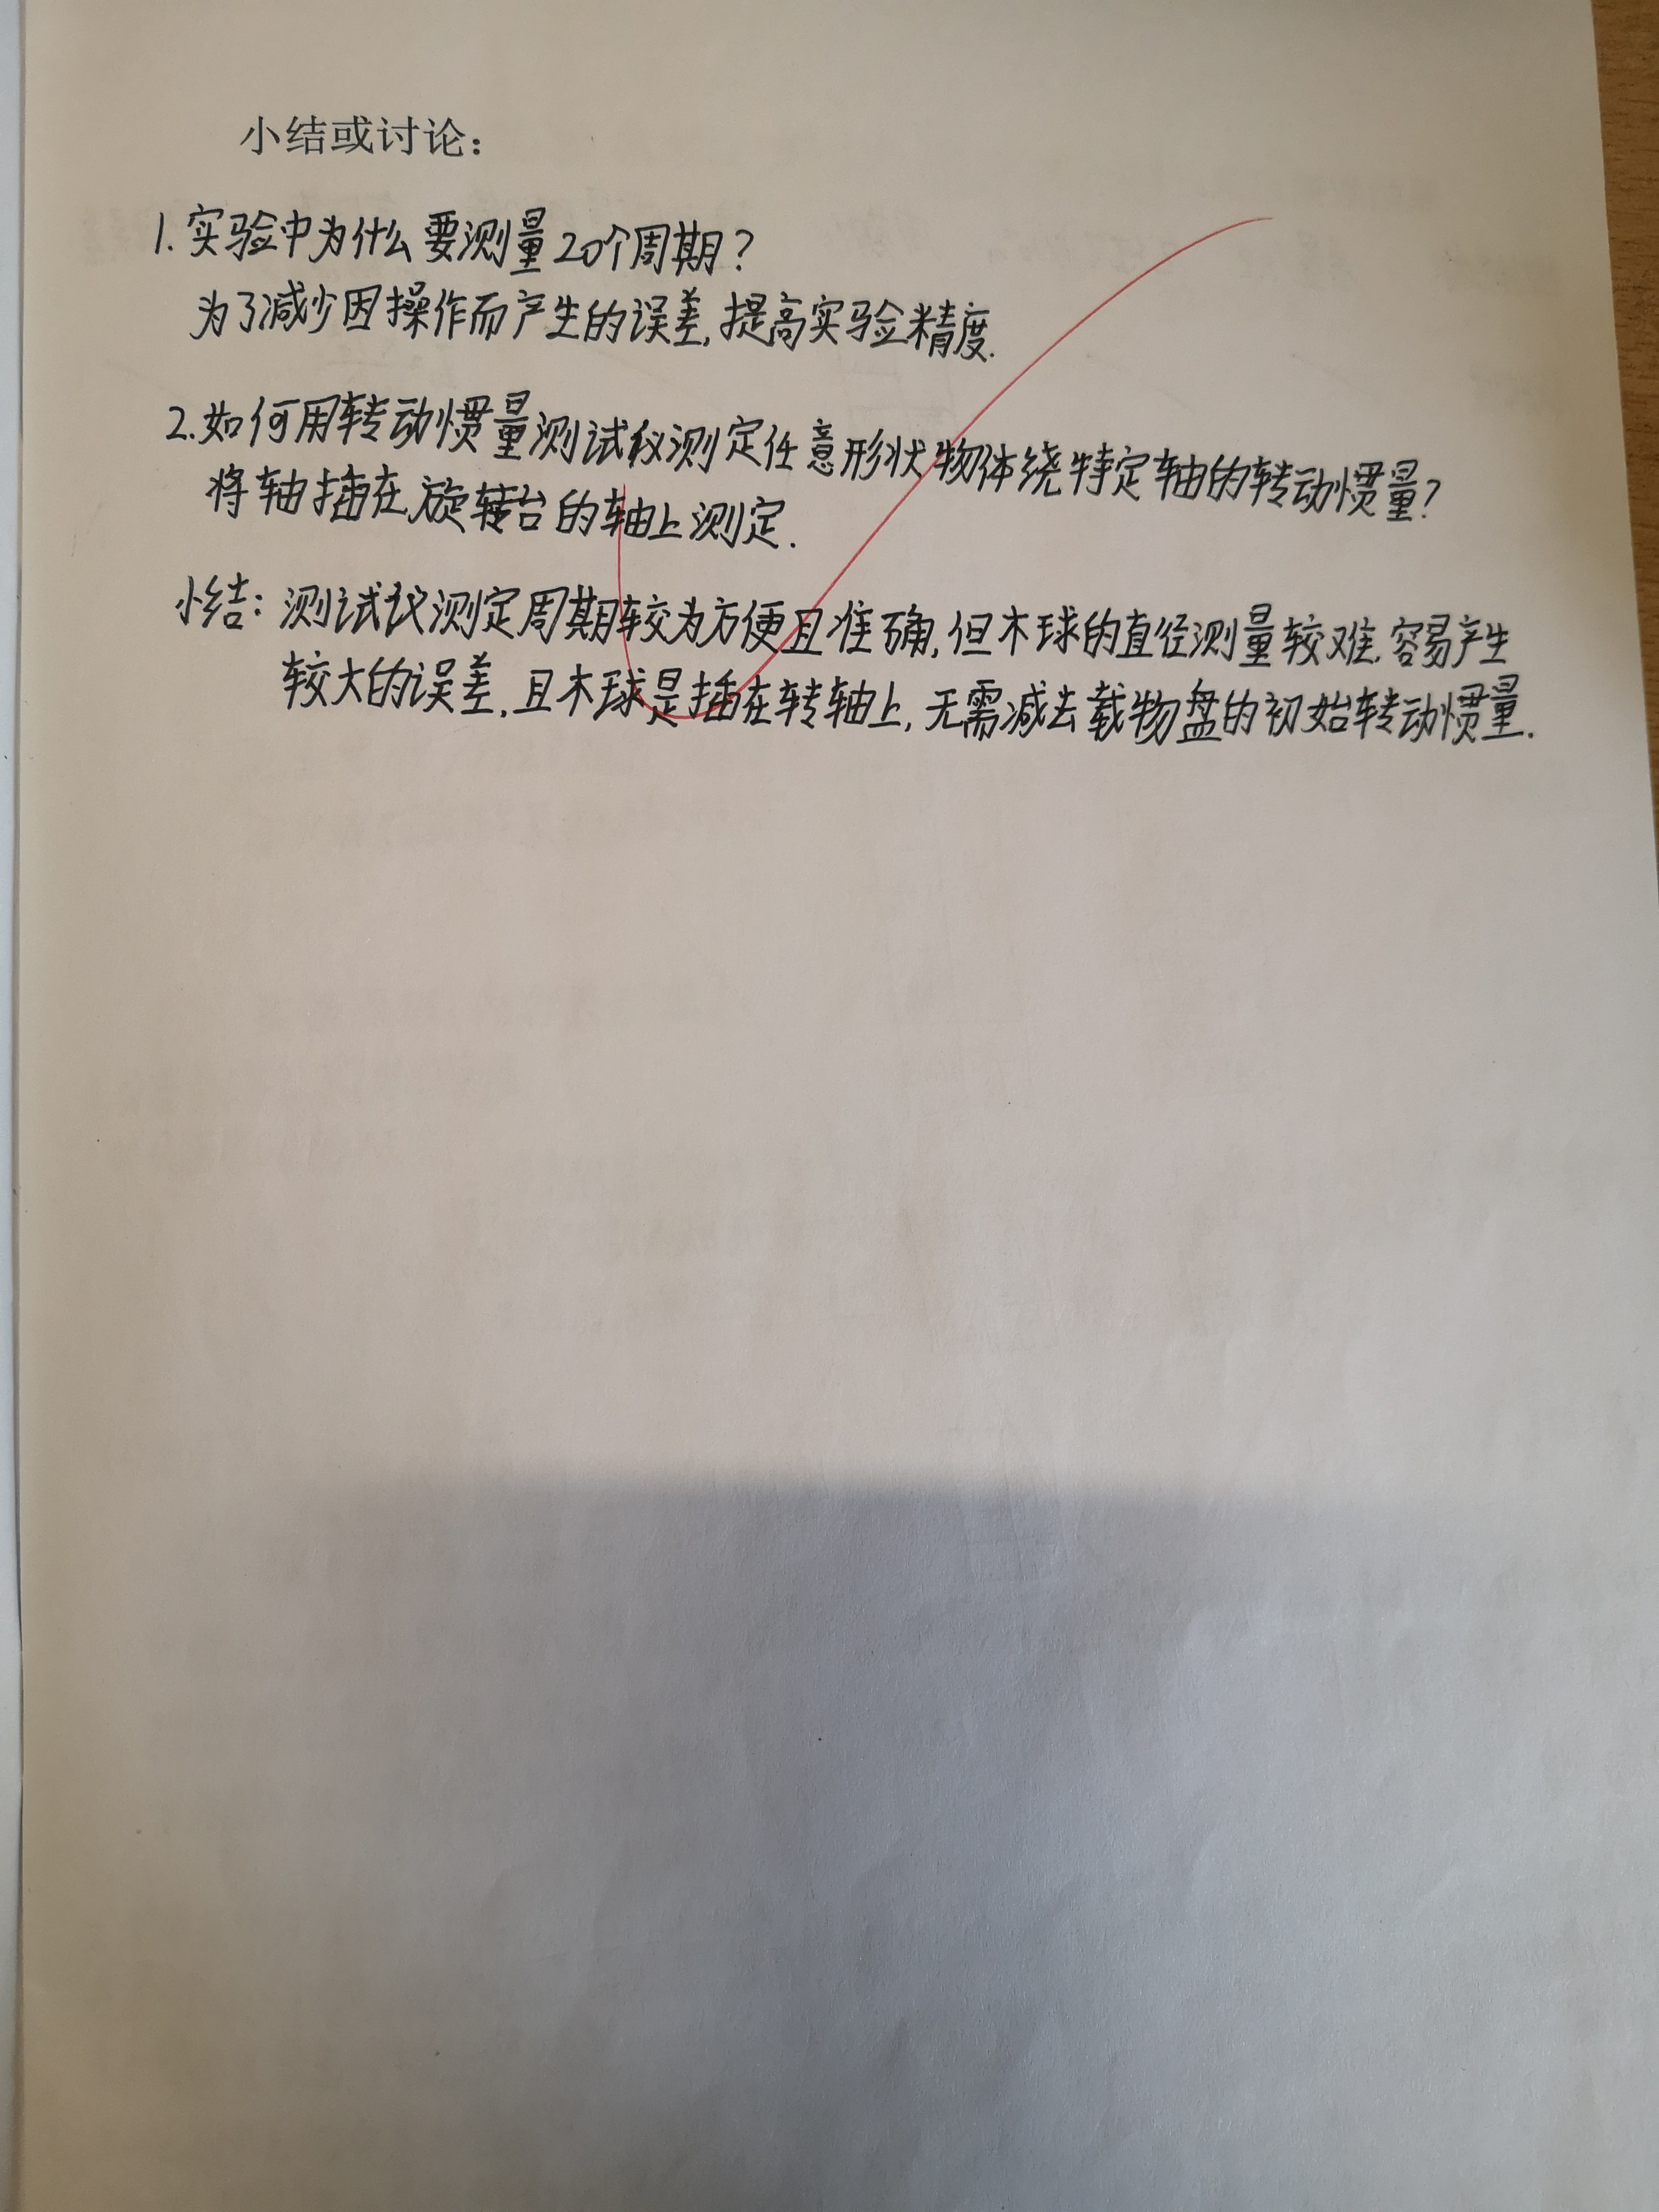 小结或讨论：
1. 实验中为什么要测量20个周期？
为了减少因操作而产生的误差，提高实验精度.
2. 如何用转动惯量测试仪测定任意形状物体绕特定轴的转动惯量？
将轴插在旋转台的轴上测定.
小结：测试仪测定周期较为方便且准确，但木球的直径测量较难，容易产生
较大的误差，且木球是插在转轴上，无需减去载物盘的初始转动惯量.